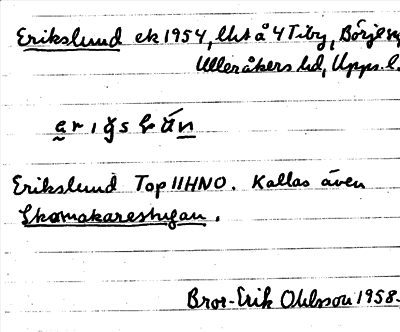 Erikslund ek 1954, lht å 4 Tiby, Börje sn,
Ulleråkers hd, Upps. l.
Erikslund Top 11HNO. Kallas även
Skomakarestugan.
Bror-Erik Ohlsson 1958.